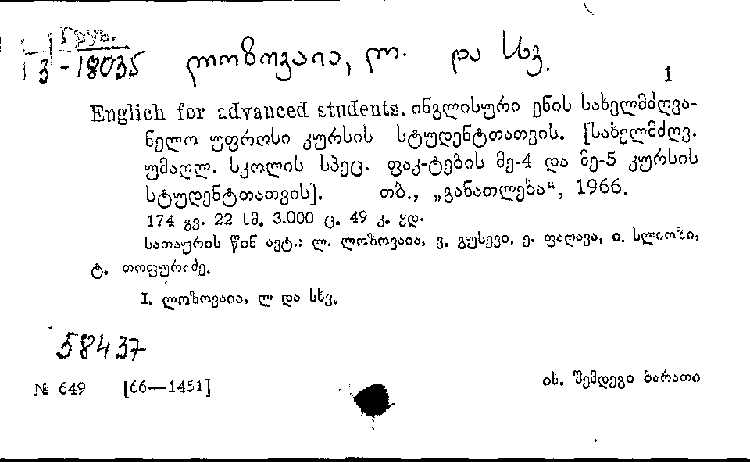 Груз.
3-18035
ლოზოვაია, ლ. და სხვ.
1
Englich for advanced students. ინგლისური ენის სახელმძღვა-
ნელო უფროსი კურსის სტუდენტთათვის. [სახელმძღვ.
უმაღლ. სკოლის სპეც. ფაკ-ტების მე-4 და მე-5 კურსის
სტუდენტთათვის]. თბ., „განათლება“, 1966.
174 გვ. 22 სმ. 3.000 ც. 49 კ. ყდ.
სათაურის წინ ავტ.: ლ. ლოზოვაია, ვ. გუსევი, ე. ფაღავა, ი.
ტ. თოფურიძე.
I. ლოზოვაია, ლ და სხვ.
58437
№ 649 [66—1451]
იხ. შემდეგი ბარათი